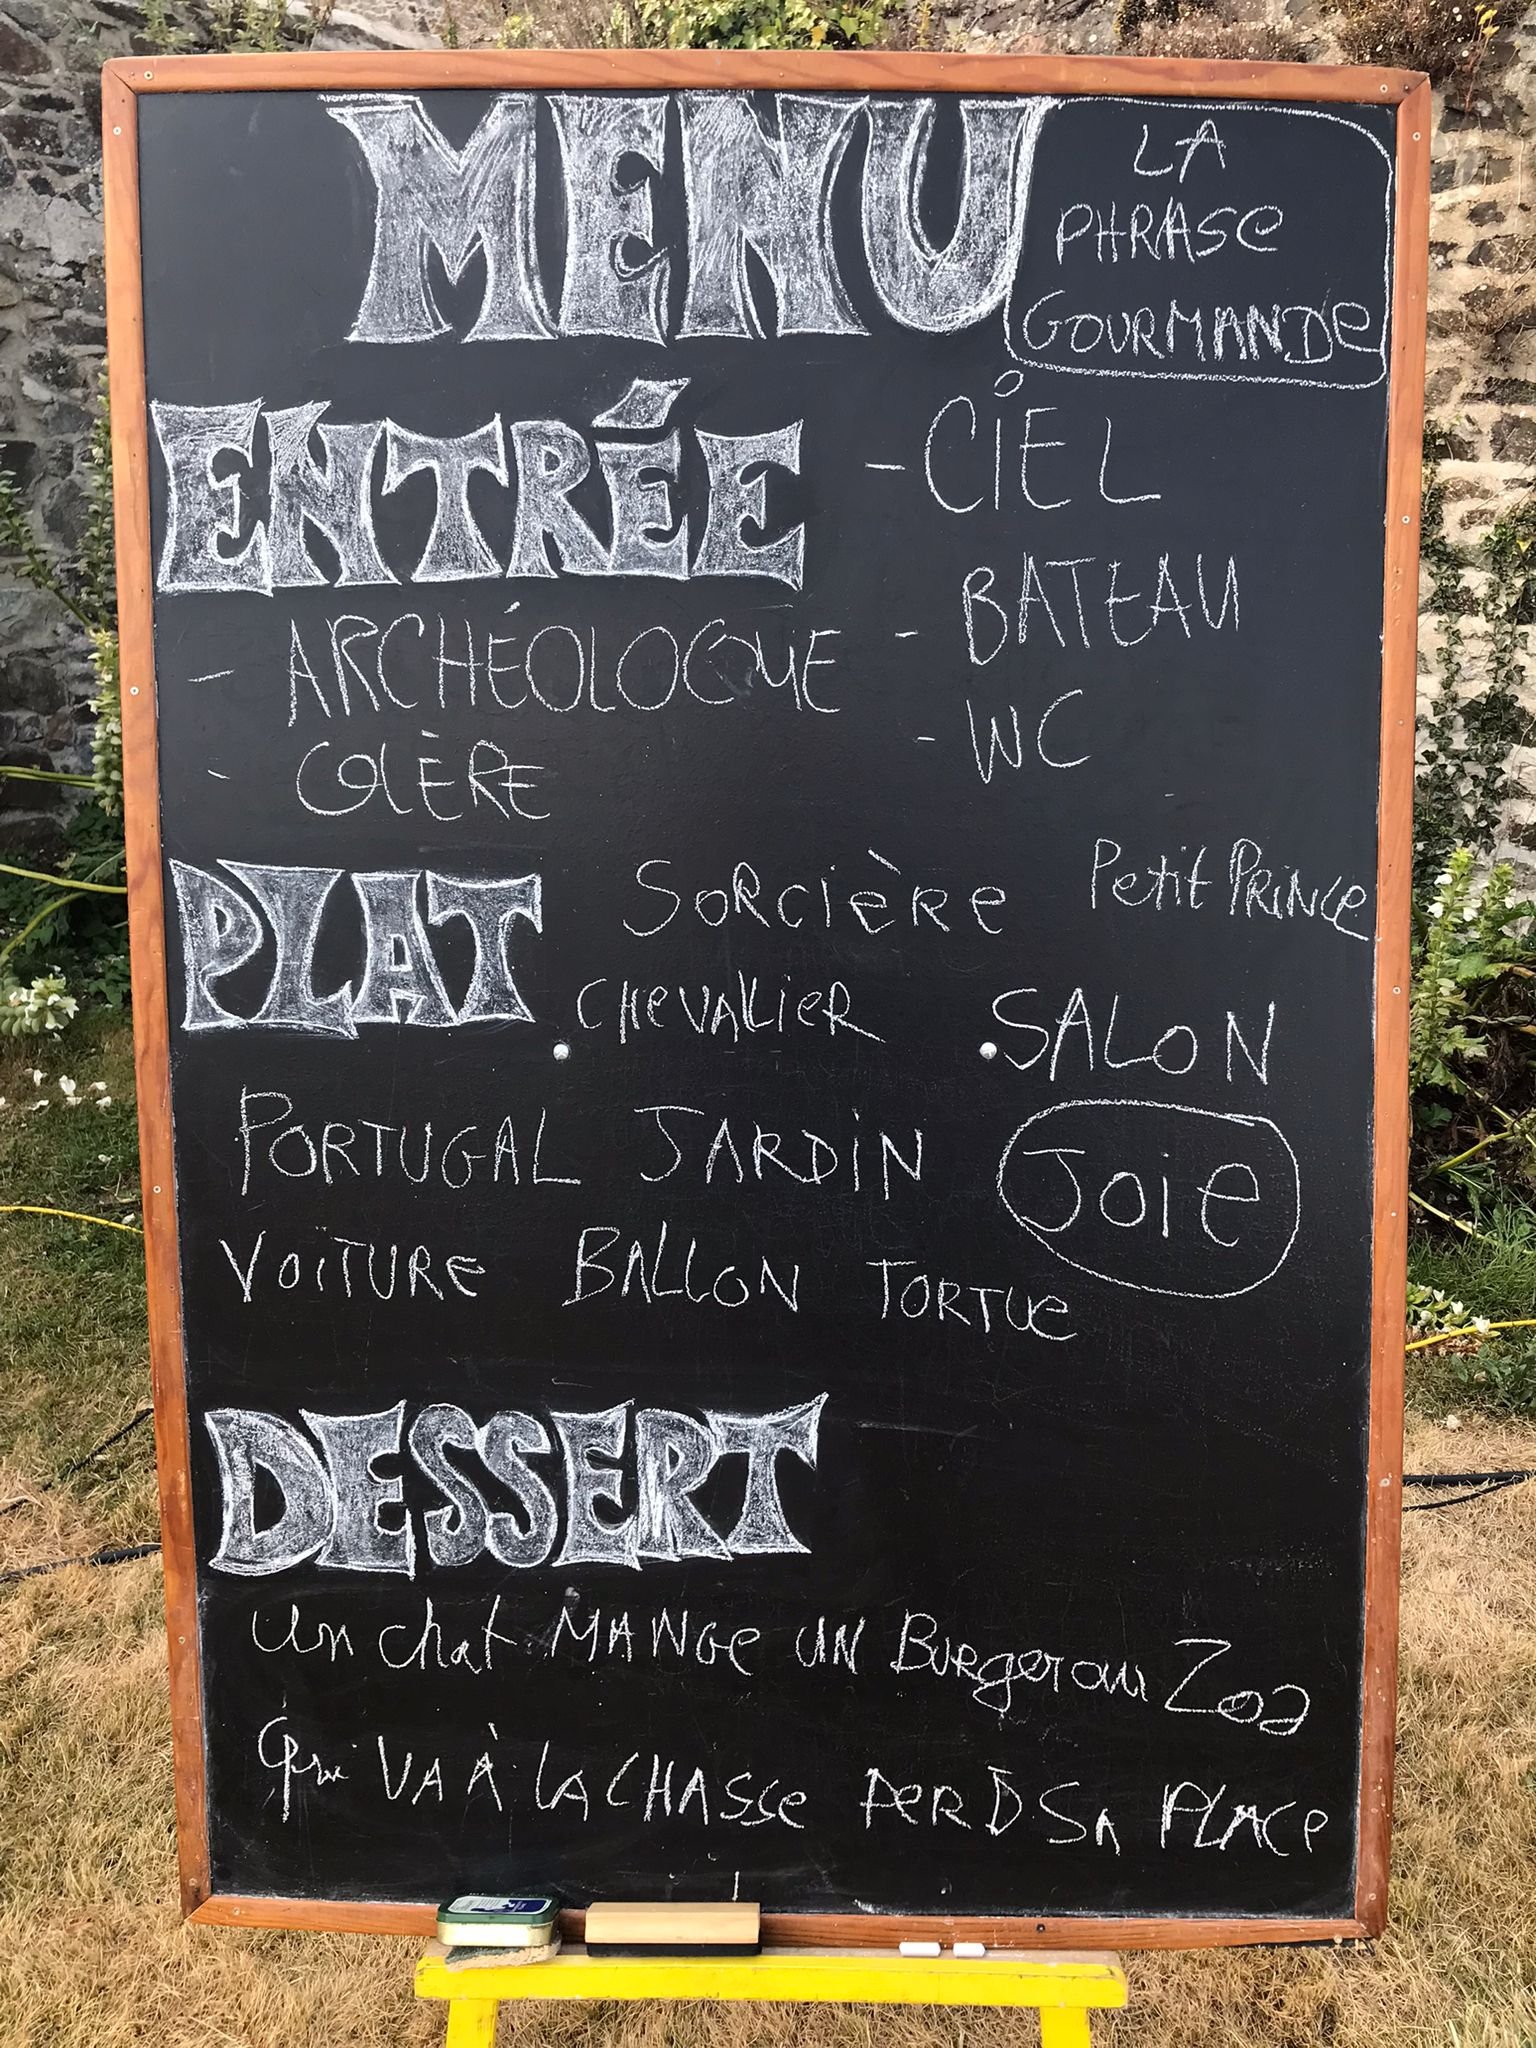 MENU
LA
PHRASE
GOURMANDE
ENTRÉE
- CIEL
- BATEAU
- WC
- ARCHÉOLOGUE
- COLÈRE
PLAT
SORCIÈRE Petit PRINCE
CHEVALLIER SALON
PORTUGAL JARDIN JOIE
VOITURE BALLON TORTUE
DESSERT
Un chat MANGE UN BURGER au Zoo
Qui VA À LA CHASSE PERD SA PLACE